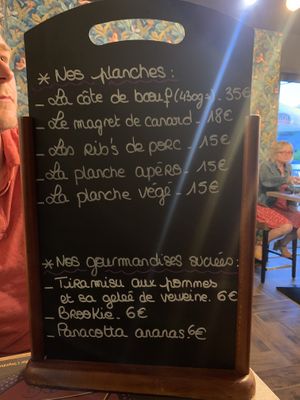 * Nos planches :
- La côte de bœuf (430g~) - 35€
- Le magret de canard - 18€
- Les Rib's de porc - 15€
- La planche apéro - 15€
- La planche végé - 15€
* Nos gourmandises sucrées :
- Tiramisu aux pommes
et sa gelée de verveine. 6€
- Brookie. 6€
- Panacotta ananas. 6€